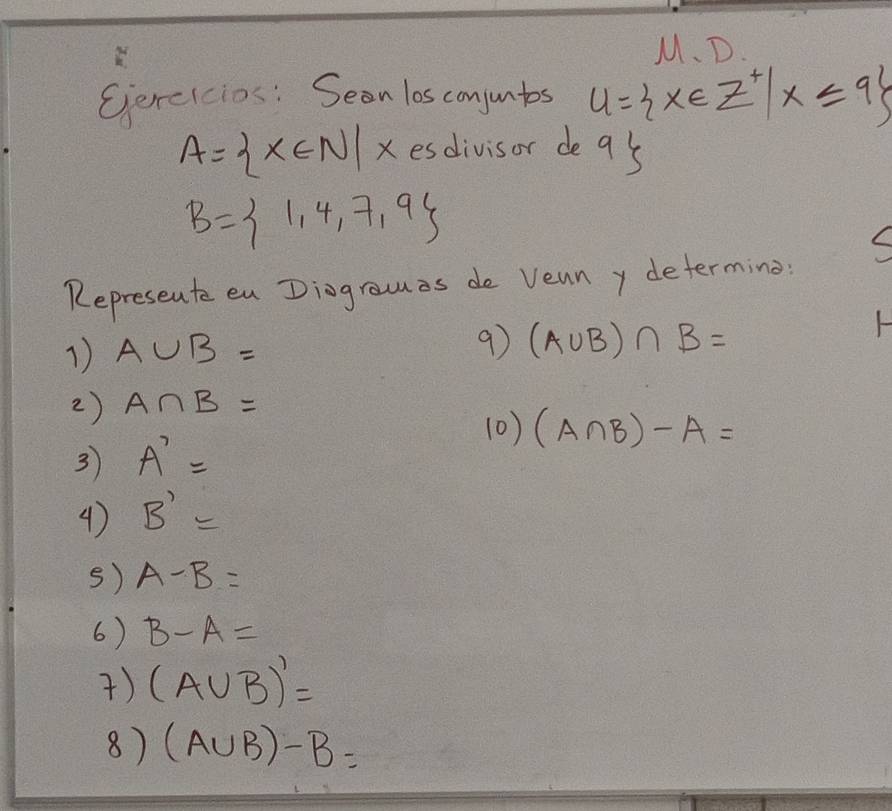 M.D.
Ejercicios: Sean los conjuntos U={x∈Z⁺|x≤9}
A={x∈N| x es divisor de 9}
B={1,4,7,9}
Representa en Diagramas de Venn y determina:
1) A∪B =
2) A∩B =
3) A' =
4) B' =
5) A-B =
6) B-A =
7) (A∪B)' =
8) (A∪B)-B =
9) (A∪B)∩B =
10) (A∩B)-A =
S
H